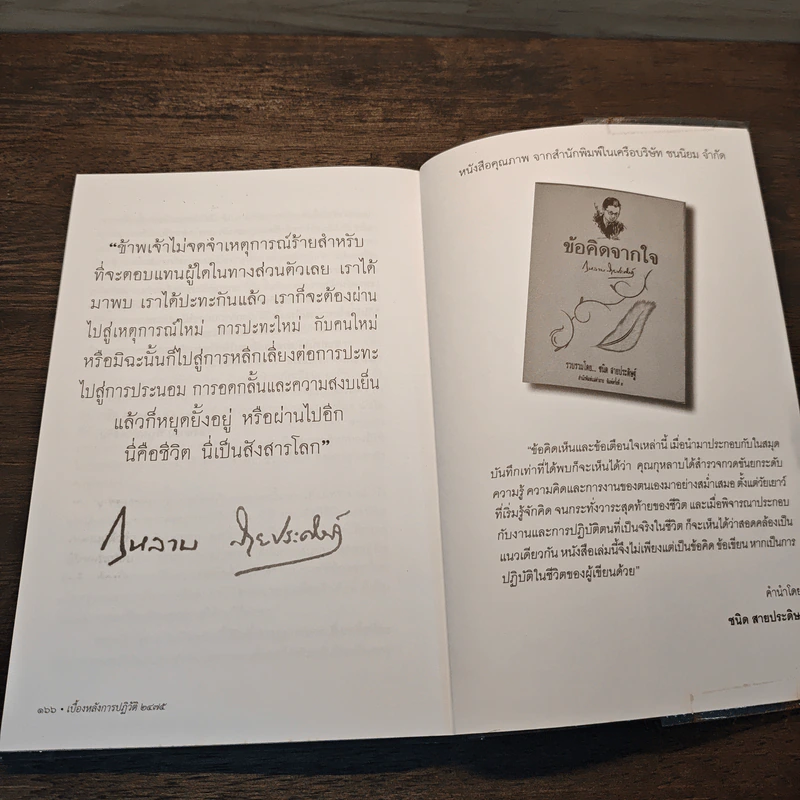 “ข้าพเจ้าไม่จดจำเหตุการณ์ร้ายสำหรับ
ที่จะตอบแทนผู้ใดในทางส่วนตัวเลย เราได้
มาพบ เราได้ปะทะกันแล้ว เราก็จะต้องผ่าน
ไปสู่เหตุการณ์ใหม่ การปะทะใหม่ กับคนใหม่
หรือมิฉะนั้นก็ไปสู่การหลีกเลี่ยงต่อการปะทะ
ไปสู่การประนอม การอดกลั้นและความสงบเย็น
แล้วก็หยุดยั้งอยู่ หรือผ่านไปอีก
นี่คือชีวิต นี่เป็นสังสารโลก”
กุหลาบ สายประดิษฐ์
๑๖๖ • เบื้องหลังการปฏิวัติ ๒๔๗๕
หนังสือคุณภาพ จากสำนักพิมพ์ในเครือบริษัท ชนนิยม จำกัด
ข้อคิดจากใจ
กุหลาบ สายประดิษฐ์
รวบรวมโดย... ชนิด สายประดิษฐ์
“ข้อคิดเห็นและข้อเตือนใจเหล่านี้ เมื่อนำมาประกอบกับในสมุด
บันทึกเท่าที่ได้พบก็จะเห็นได้ว่า คุณกุหลาบได้สำรวจกวดขันยกระดับ
ความรู้ ความคิดและการงานของตนเองมาอย่างสม่ำเสมอ ตั้งแต่วัยเยาว์
ที่เริ่มรู้จักคิด จนกระทั่งวาระสุดท้ายของชีวิต และเมื่อพิจารณาประกอบ
กับงานและการปฏิบัติตนที่เป็นจริงในชีวิต ก็จะเห็นได้ว่าสอดคล้องเป็น
แนวเดียวกัน หนังสือเล่มนี้จึงไม่เพียงแต่เป็นข้อคิด ข้อเขียน หากเป็นการ
ปฏิบัติในชีวิตของผู้เขียนด้วย”
คำนำโดย
ชนิด สายประดิษ